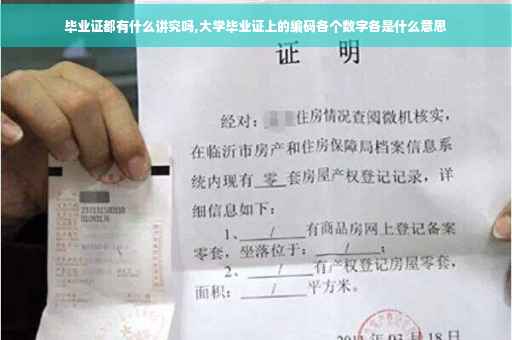 毕业证都有什么讲究吗,大学毕业证上的编码各个数字各是什么意思
证 明
经对:住房情况查阅微机核实,
在临沂市房产和住房保障局档案信息系
统内现有 零 套房屋产权登记记录,详
细信息如下:
1、 / 有商品房网上登记备案
零套,坐落位于: / ;
2、 / 有产权登记房屋零套,
面积: / 平方米。
03月18日